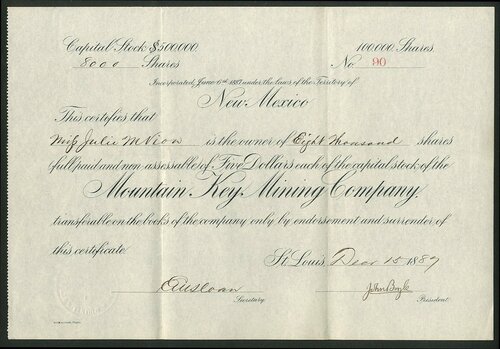 Capital Stock $500,000. 100,000 Shares
8000 Shares No 90
Incorporated, June 6th 1887 under the Laws of the Territory of
New Mexico
This certifies that
Miss Julie M is the owner of Eight Thousand shares
(full paid and non-assessable) of Five Dollars each of the capital stock of the
Mountain Key Mining Company.
transferable on the books of the company only by endorsement and surrender of
this certificate.
St. Louis, Dec 15 1887
Sloan John Bogle
Secretary. President.